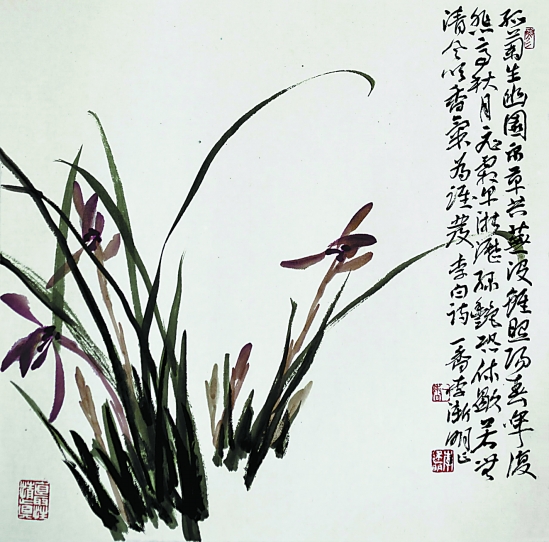 孤蘭生幽園众草共蕪没雖照陽春暉復
悲高秋月飛霜早淅瀝緑艷恐休歇若無
清風吹香氣為誰發 李白詩